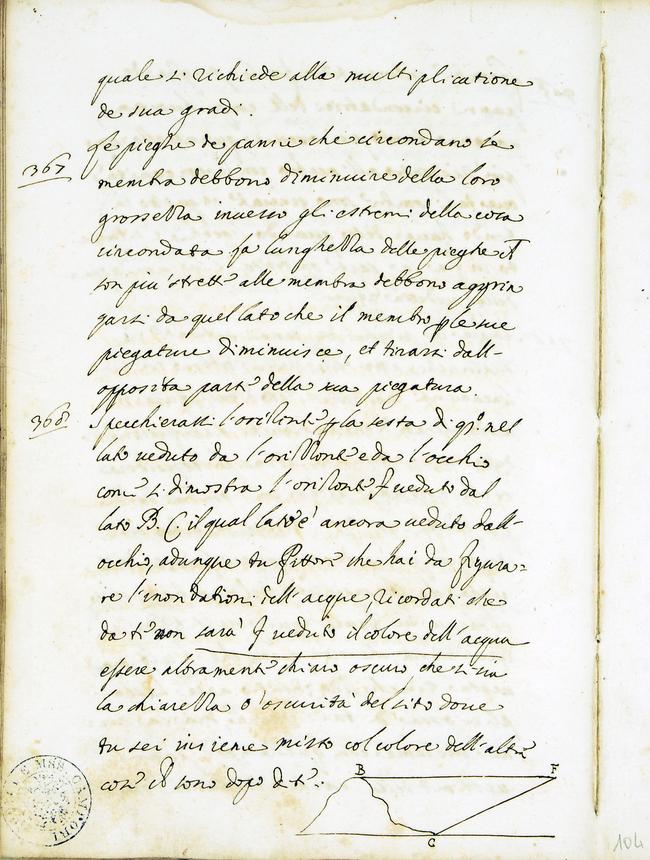 quale si richiede alla multiplicatione
de sua gradi.
367
Le pieghe de panni che circondano le
membra debbono diminuire della loro
grossezza inverso gli estremi della cosa
circondata la lunghezza delle pieghe
son piu strette alle membra debbono aggrin
zarsi da quel lato che il membro p le sue
piegature diminuisce, et tirarsi dall-
opposita parte della sua piegatura.
368
Specchierassi l'orizonte p la sesta di qº. nel
lato veduto da l'orizzonte e da l'occhio
come si dimostra l'orizonte F veduto dal
lato B. C. il qual lato è ancora veduto dall-
occhio, adunque tu Pittore che hai da figura=
re l'inondationi dell'acque, ricordati che
da te non sarà F veduto il colore dell'acqua
essere altramente chiaro oscuro che si sia
la chiarezza o' oscurità del sito dove
tu sei insieme misto col colore dell'altre
cose sono dopo di te.
B F
C
104